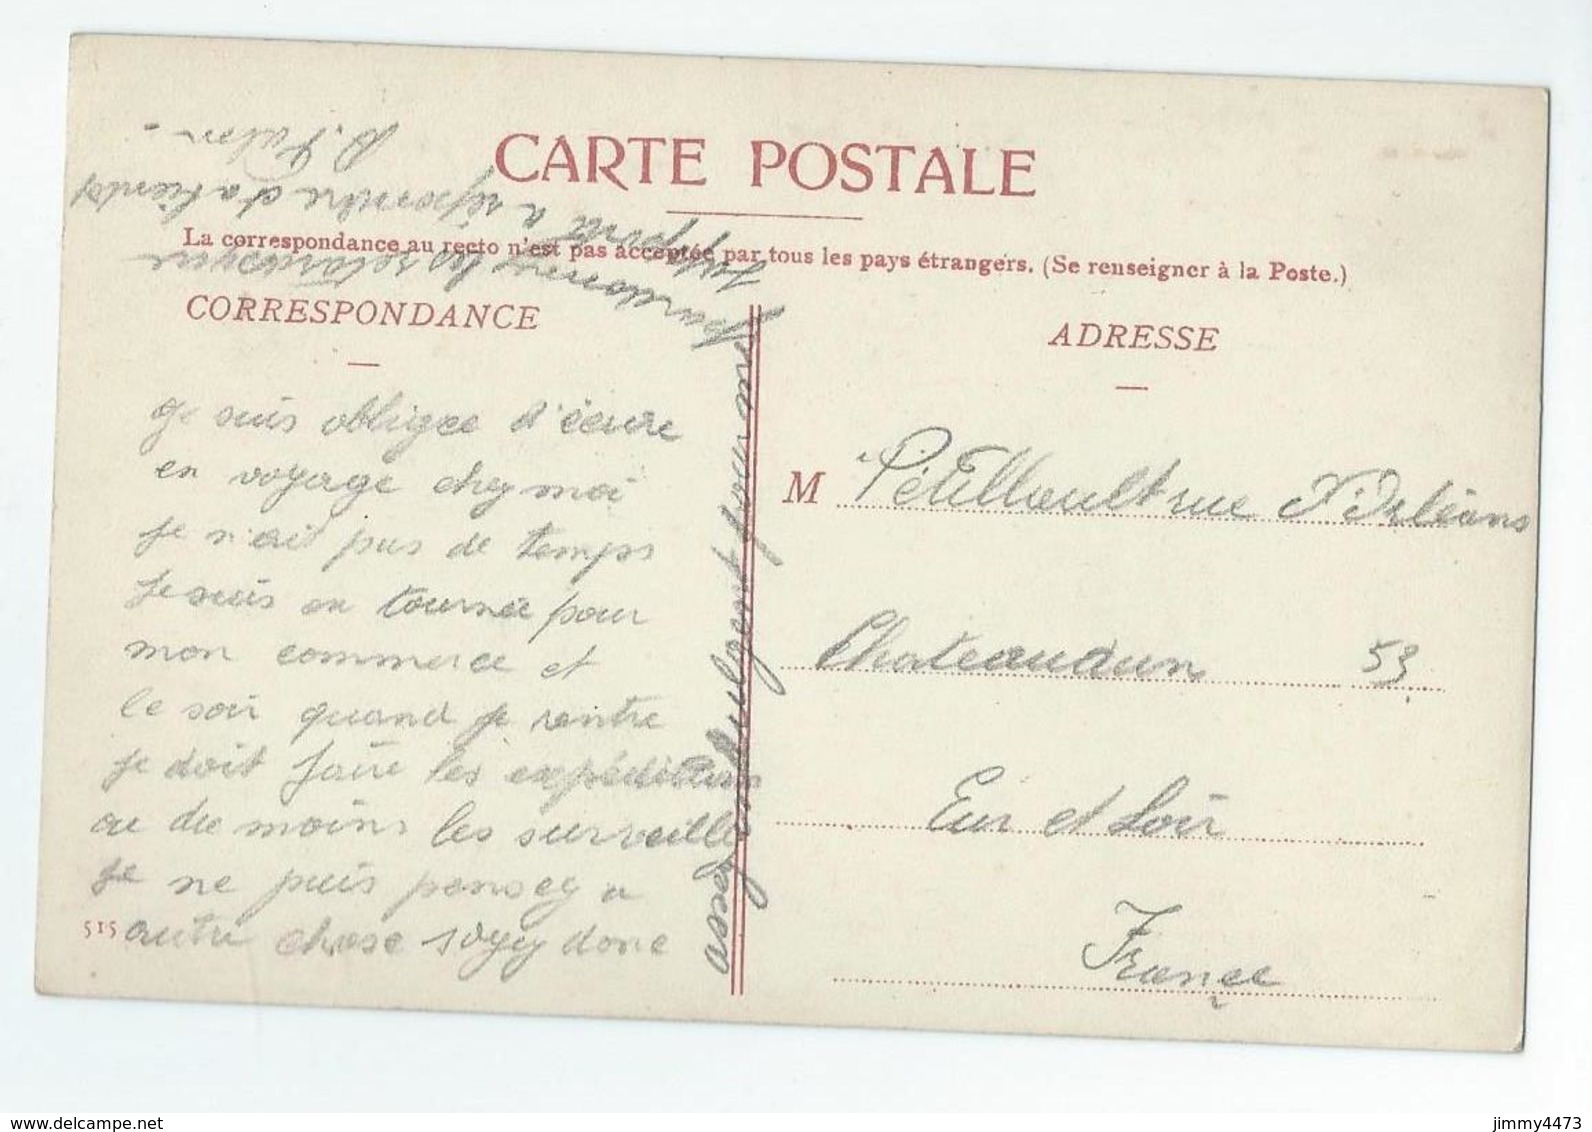 CARTE POSTALE
La correspondance au recto n'est pas acceptée par tous les pays étrangers. (Se renseigner à la Poste.)
CORRESPONDANCE
Je suis obligee d'écrire
en voyage chez moi
je n'ait pas de temps
je suis en tournée pour
mon commerce et
le soir quand je rentre
je doit faire les expéditions
ou du moins les surveille
je ne puis pensez a
autre chose soyez donc
assez indulgent pour me
pardonner les retards que
j'apporte a répondre et a bientot
ADRESSE
M Pétillault rue d'Orléans
Chateaudun 53
Eur et Loir
France
515
www.delcampe.net
jimmy4473